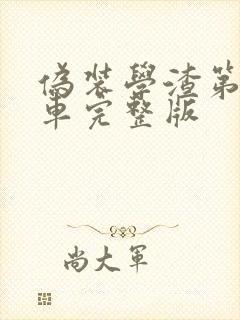 偽裝學渣第
車完整版
尚大軍